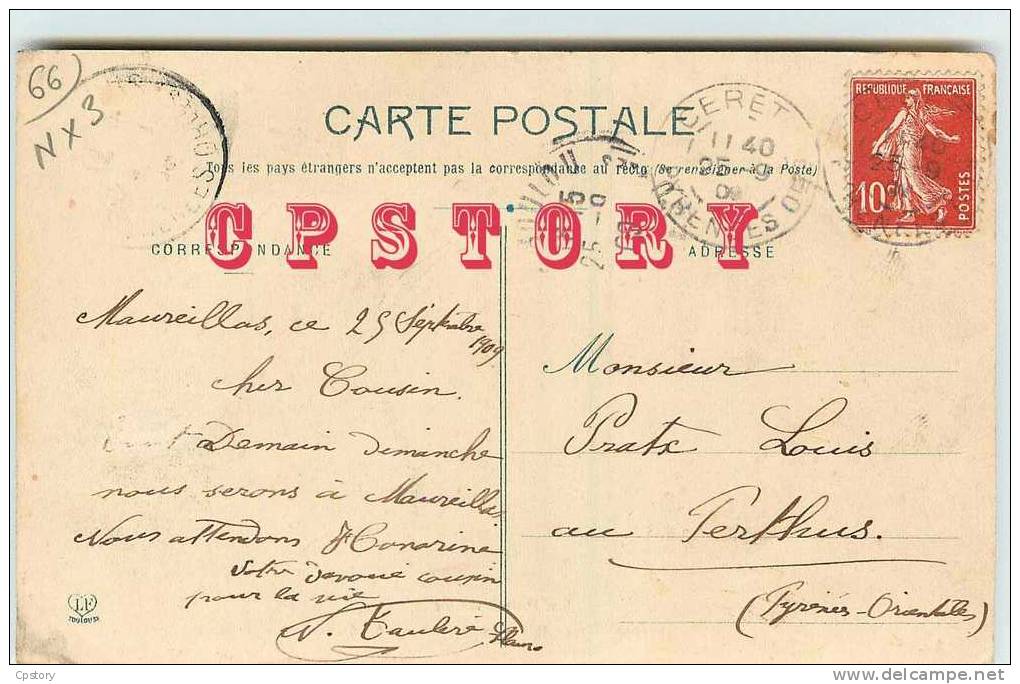 66
N x 3
CARTE POSTALE
Tous les pays étrangers n'acceptent pas la correspondance au recto (Se renseigner à la Poste)
CERET
11 40
25 -9
09
REPUBLIQUE FRANÇAISE
10
POSTES
CPSTORY
CORRESPONDANCE
ADRESSE
Maureillas, ce 25 Septembre
1909
Cher Cousin.
Demain Dimanche
nous serons à Maureillas.
Nous attendons Honorine
Votre dévoué cousin
pour la vie
Monsieur
Prats Louis
au Perthus.
(Pyrénés-Orientales)
LF
TOULOUSE
Cpstory
delcampe.net